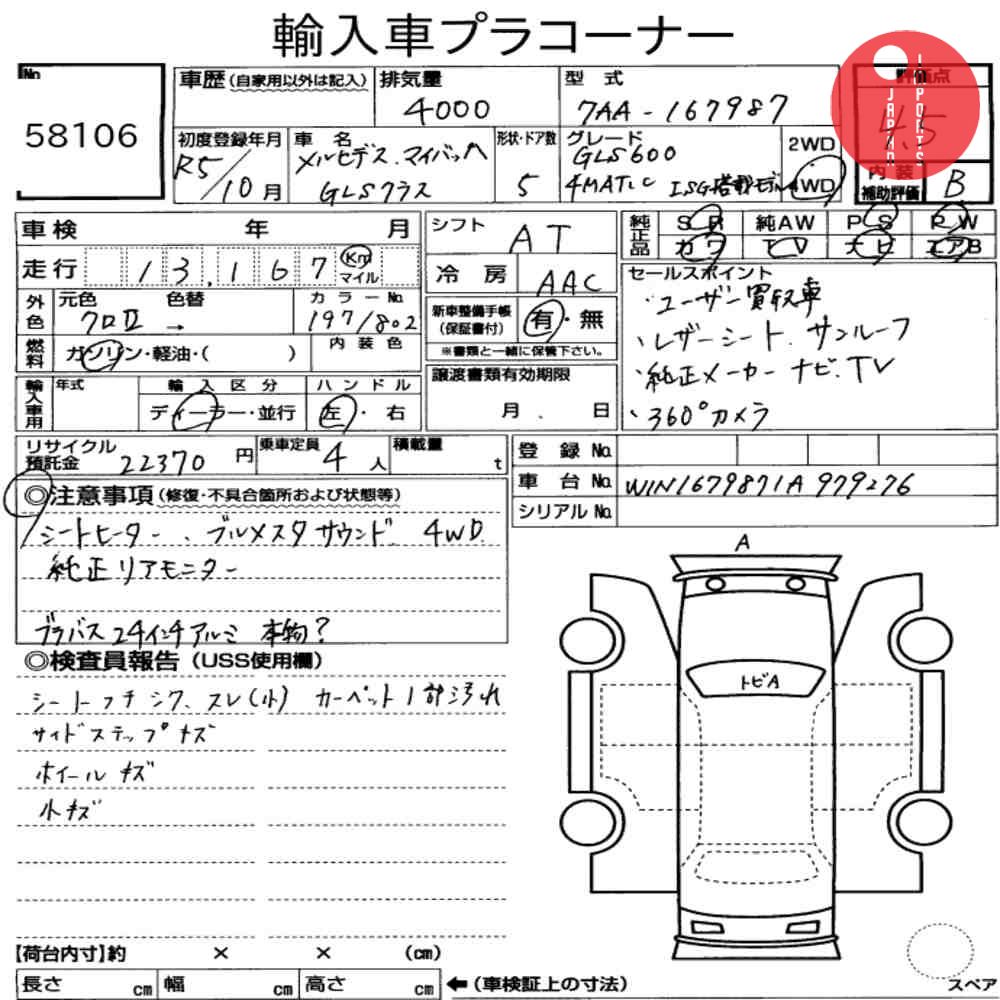 輸入車プラコーナー
No
58106
車歴(自家用以外は記入)
排気量
4000
型式
7AA-167987
評価点
4.5
JAPAN IMPORTS
初度登録年月
R5/10月
車名
メルセデス.マイバッハ
GLSクラス
形状・ドア数
5
グレード
GLS600
4MATIC ISG搭載モデル
2WD
4WD
内装
補助評価
B
車検 年 月
走行 13,167 Km マイル
シフト
AT
冷房
AAC
純正品
SR 純AW PS PW
カワ TV ナビ エアB
外色
元色 色替
クロII →
カラーNo.
197/802
燃料
ガソリン・軽油・( )
内装色
新車整備手帳
(保証書付)
有・無
※書類と一緒に保管下さい。
セールスポイント
・ユーザー買取車
・レザーシート.サンルーフ
・純正メーカーナビ.TV
・360°カメラ
輸入車用
年式
輸入区分
ディーラー・並行
ハンドル
左・右
譲渡書類有効期限
月.日
リサイクル
預託金
22370円
乗車定員
4人
積載量
t
登録No.
車台No. W1N1679871A979276
シリアルNo.
◎注意事項(修復・不具合箇所および状態等)
シートヒーター、ブルメスタサウンド. 4WD.
純正リアモニター
ブラバス24インチアルミ 本物?
◎検査員報告(USS使用欄)
シートフチシワ、スレ(小) カーペット1部汚れ
サイドステップキズ
ホイールキズ
小キズ
A
トビA
【荷台内寸】約 × × (cm)
長さ cm 幅 cm 高さ cm ←(車検証上の寸法)
スペア